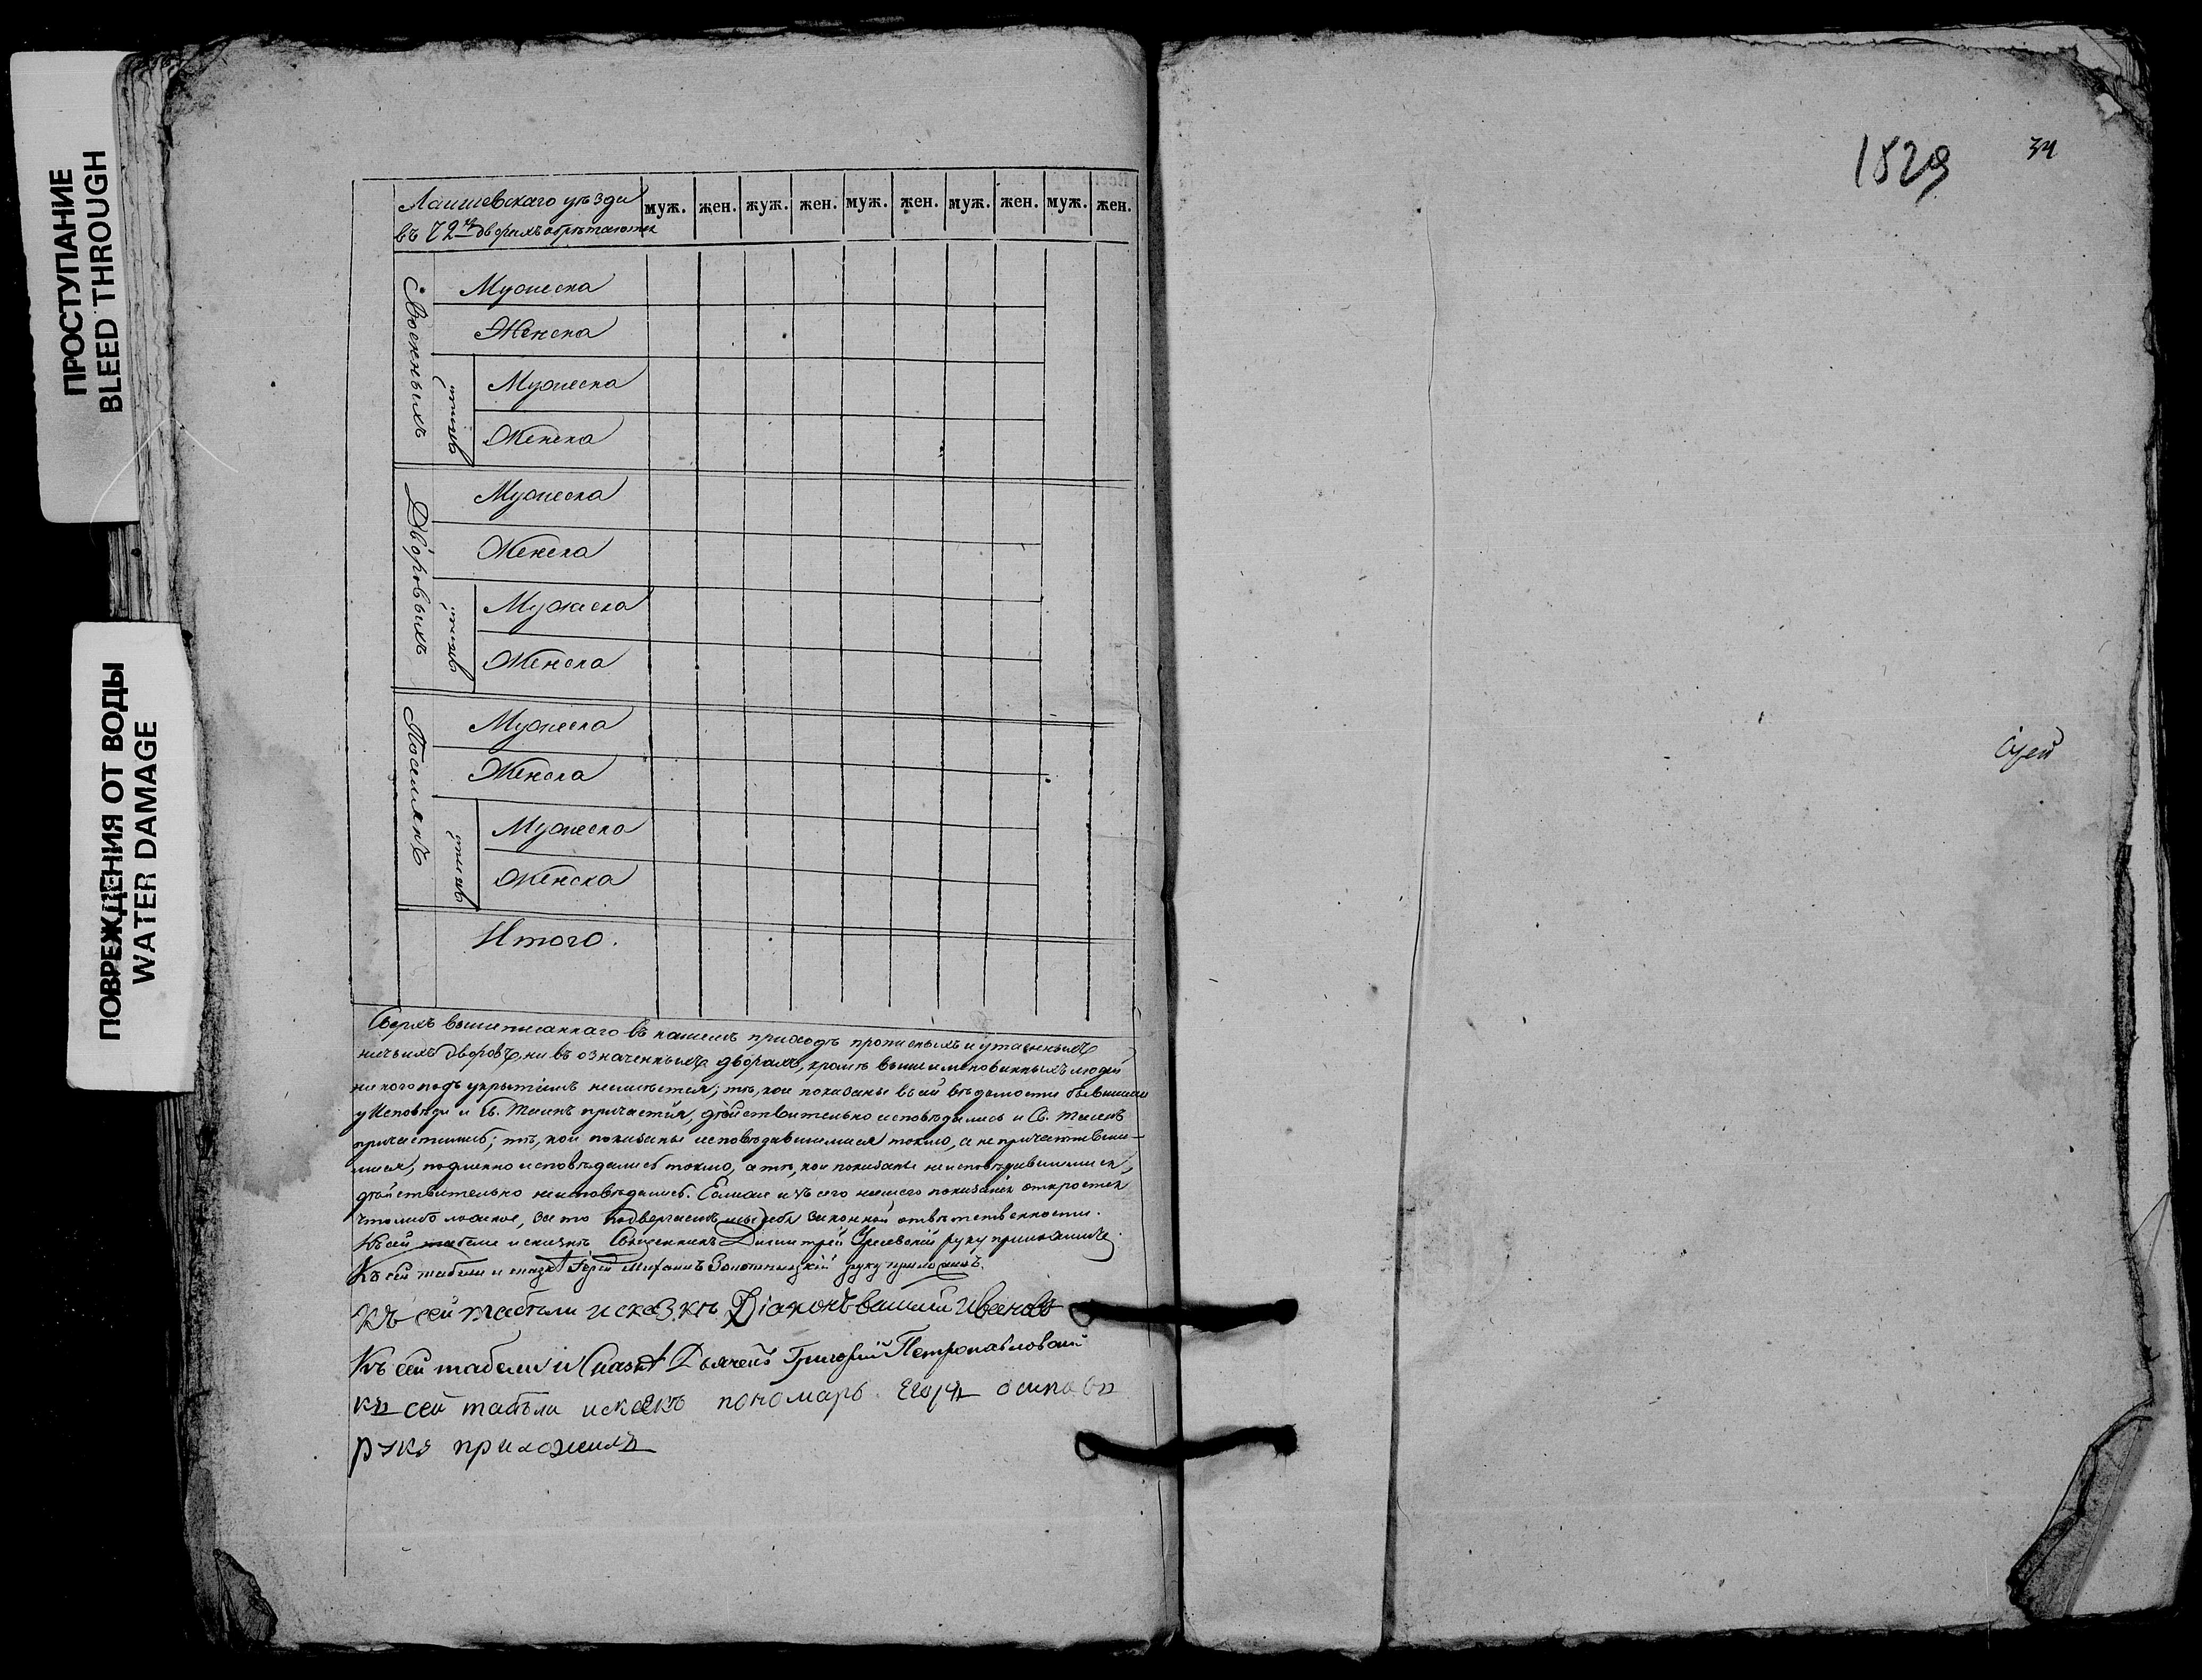 ПРОСТУПАНИЕ
BLEED THROUGH
ПОВРЕЖДЕНИЯ ОТ ВОДЫ
WATER DAMAGE
Лаишевскаго уѣзда
въ 72хъ дворахъ обрѣтаются
муж. жен. муж. жен. муж. жен. муж. жен. муж. жен.
Военныхъ
Мужеска
Женска
дѣтей
Мужеска
Женска
Дворовыхъ
Мужеска
Женска
дѣтей
Мужеска
Женска
Поселянъ
Мужеска
Женска
дѣтей
Мужеска
Женска
Итого.
Сверхъ вышеписаннаго въ нашемъ приходѣ прописныхъ и утаенныхъ
ничьихъ дворовъ, ни въ означенныхъ дворахъ, кромѣ вышеименованныхъ людей
никого подъ укрытіемъ неимѣется; тѣ, кои показаны въ сей вѣдомости бывшими
у Исповѣди и Св. Таинъ причастія, дѣйствительно исповѣдались и Св. Таинъ
причастились; тѣ, кои показаны исповѣдавшимися токмо, а не причастивши-
мися, подлинно исповѣдались токмо, а тѣ, кои показаны неисповѣдавшимися,
дѣйствительно неисповѣдались. Ежели изъ сего нашего показанія откроется
что либо ложное, за то подвергаемъ себя законной отвѣтственности.
Къ сей табели и сказкѣ Священникъ Димитрей руку приложилъ.
Къ сей табели и сказкѣ Іерей Михаилъ Золотницкій руку приложилъ.
Къ сей табели и сказкѣ Діаконъ василий Ивановъ
Къ сей табели и сказкѣ Дьячекъ Григорий Петропавловский
къ сей табели и скаскѣ пономарь Егоръ осиповъ
руку приложилъ
1829
34